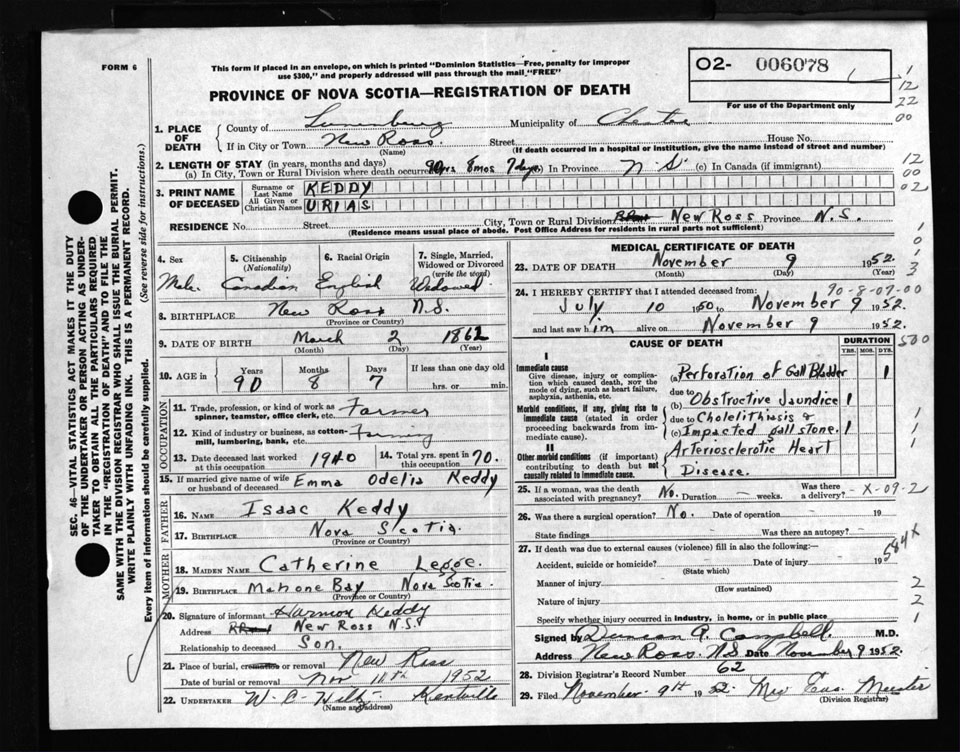 FORM 6
This form if placed in an envelope, on which is printed "Dominion Statistics—Free, penalty for improper
use $300," and properly addressed will pass through the mail "FREE"
O2- 006078
For use of the Department only
1
12
22
00
PROVINCE OF NOVA SCOTIA—REGISTRATION OF DEATH
1. PLACE OF DEATH
County of Lunenburg Municipality of Chester
If in City or Town New Ross Street House No.
(Name) (If death occurred in a hospital or institution, give the name instead of street and number)
2. LENGTH OF STAY (in years, months and days)
(a) In City, Town or Rural Division where death occurred 90yrs 8mos 7days (b) In Province N S (c) In Canada (if immigrant)
12
00
02
3. PRINT NAME OF DECEASED
Surname or Last Name KEDDY
All Given or Christian Names URIAS
RESIDENCE No. Street City, Town or Rural Division New Ross Province N.S.
(Residence means usual place of abode. Post Office Address for residents in rural parts not sufficient)
4. Sex
Male
5. Citizenship
(Nationality)
Canadian
6. Racial Origin
English
7. Single, Married,
Widowed or Divorced
(write the word)
Widowed
8. BIRTHPLACE New Ross N.S.
(Province or Country)
9. DATE OF BIRTH March 2 1862
(Month) (Day) (Year)
10. AGE in
Years Months Days If less than one day old
90 8 7 hrs. or min.
OCCUPATION
11. Trade, profession, or kind of work as Farmer
spinner, teamster, office clerk, etc.
12. Kind of industry or business, as cotton-
mill, lumbering, bank, etc. Farming
13. Date deceased last worked
at this occupation 1940
14. Total yrs. spent in
this occupation 70.
15. If married give name of wife
or husband of deceased Emma Odelia Keddy
FATHER
16. NAME Isaac Keddy
17. BIRTHPLACE Nova Scotia.
(Province or Country)
MOTHER
18. MAIDEN NAME Catherine Legge.
19. BIRTHPLACE Mahone Bay Nova Scotia
(Province or Country)
20. Signature of informant Harmon Keddy
Address New Ross N.S.
Relationship to deceased Son.
21. Place of burial, cremation or removal New Ross
Date of burial or removal Nov 11th 1952
22. UNDERTAKER W. C. Hiltz Kentville
(Name and address)
MEDICAL CERTIFICATE OF DEATH
23. DATE OF DEATH November 9 1952
(Month) (Day) (Year)
1
0
1
3
24. I HEREBY CERTIFY that I attended deceased from: 90-8-07-00
July 10 1950 to November 9 1952.
and last saw him alive on November 9 1952.
CAUSE OF DEATH
DURATION
YRS. MOS. DYS.
500
I
Immediate cause
Give disease, injury or complica-
tion which caused death, not the
mode of dying, such as heart failure,
asphyxia, asthenia, etc.
(a) Perforation of Gall Bladder 1
due to
(b) Obstructive Jaundice 1
Morbid conditions, if any, giving rise to
immediate cause (stated in order
proceeding backwards from im-
mediate cause).
due to Cholelithiasis &
(c) Impacted gall stone. 1
II
Other morbid conditions (if important)
contributing to death but not
causally related to immediate cause.
Arteriosclerotic Heart
Disease.
1
1
1
25. If a woman, was the death
associated with pregnancy? No. Duration — weeks. Was there
a delivery? - X-09-2
26. Was there a surgical operation? No. Date of operation — 19
State findings Was there an autopsy? —
27. If death was due to external causes (violence) fill in also the following:—
Accident, suicide or homicide? Date of injury 19
(State which)
584X
Manner of injury
(How sustained)
2
Nature of injury
2
Specify whether injury occurred in industry, in home, or in public place
1
Signed by Duncan G. Campbell. M.D.
Address New Ross. N.S Date November 9 1952.
28. Division Registrar's Record Number 62
29. Filed November 9th 1952. Meister
(Division Registrar)
SEC. 46—VITAL STATISTICS ACT MAKES IT THE DUTY
OF THE UNDERTAKER OR PERSON ACTING AS UNDER-
TAKER TO OBTAIN ALL THE PARTICULARS REQUIRED
IN THE "REGISTRATION OF DEATH" AND TO FILE THE
SAME WITH THE DIVISION REGISTRAR WHO SHALL ISSUE THE BURIAL PERMIT.
WRITE PLAINLY WITH UNFADING INK. THIS IS A PERMANENT RECORD.
Every item of information should be carefully supplied. (See reverse side for instructions.)